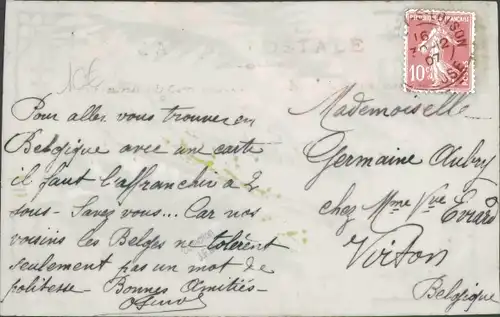 CARTE POSTALE
RÉPUBLIQUE FRANÇAISE
10c
16
12
07
Pour aller vous trouver en
Belgique avec une carte
il faut l'affranchir à 2
sous - Savez vous... Car nos
voisins les Belges ne tolèrent
seulement pas un mot de
politesse - Bonnes Amitiés -
Mademoiselle
Germaine Aubry
chez Mme Vve Evrard
Virton
Belgique